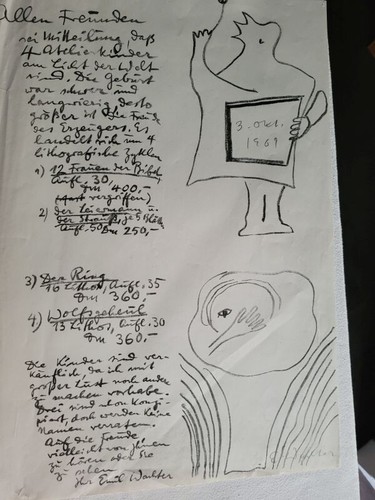 Allen Freunden
sei Mitteilung, daß
4 Atelierkinder
am Licht der Welt
sind. Die Geburt
war schwer und
langwierig desto
größer ist die Freude
des Erzeugers. Es
handelt sich um 4
lithografische Zyklen
1) 12 Frauen der Bibel,
Aufl. 30,
Dm 400,-
(fast vergriffen)
2) der Leiermann u.
der Strauß, je 5 Blätt
Aufl. 50 Dm 250,-
3) Der Ring
10 Lithos, Aufl. 35
Dm 360,-
4) Wolfsgeheul
13 Lithos, Aufl. 30
Dm 360,-
Die Kinder sind ver-
käuflich, da ich mit
großer Lust noch andere
zu machen vorhabe.
Drei sind schon konzi-
piert, doch werden keine
Namen verraten.
Auf die Freude
vielleicht von Ihnen
zu hören oder Sie
zu sehen
Ihr Emil Wachter
3. Okt.
1969